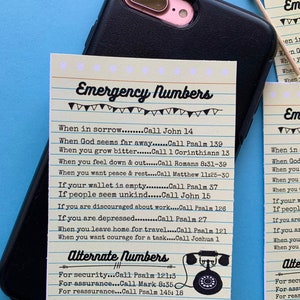 Emergency Numbers
When in sorrow........Call John 14
When God seems far away......Call Psalm 139
When you grow bitter.....Call 1 Corinthians 13
When you feel down & out....Call Romans 8:31-39
When you want peace & rest....Call Matthew 11:25-30
If your wallet is empty........Call Psalm 37
If people seem unkind.....Call John 15
If you are discouraged about work....Call Psalm 126
If you are depressed........Call Psalm 27
When you leave home for travel.....Call Psalm 121
When you want courage for a task....Call Joshua 1
Alternate Numbers
For security...Call Psalm 121:3
For assurance...Call Mark 8:35
For reassurance...Call Psalm 145:18